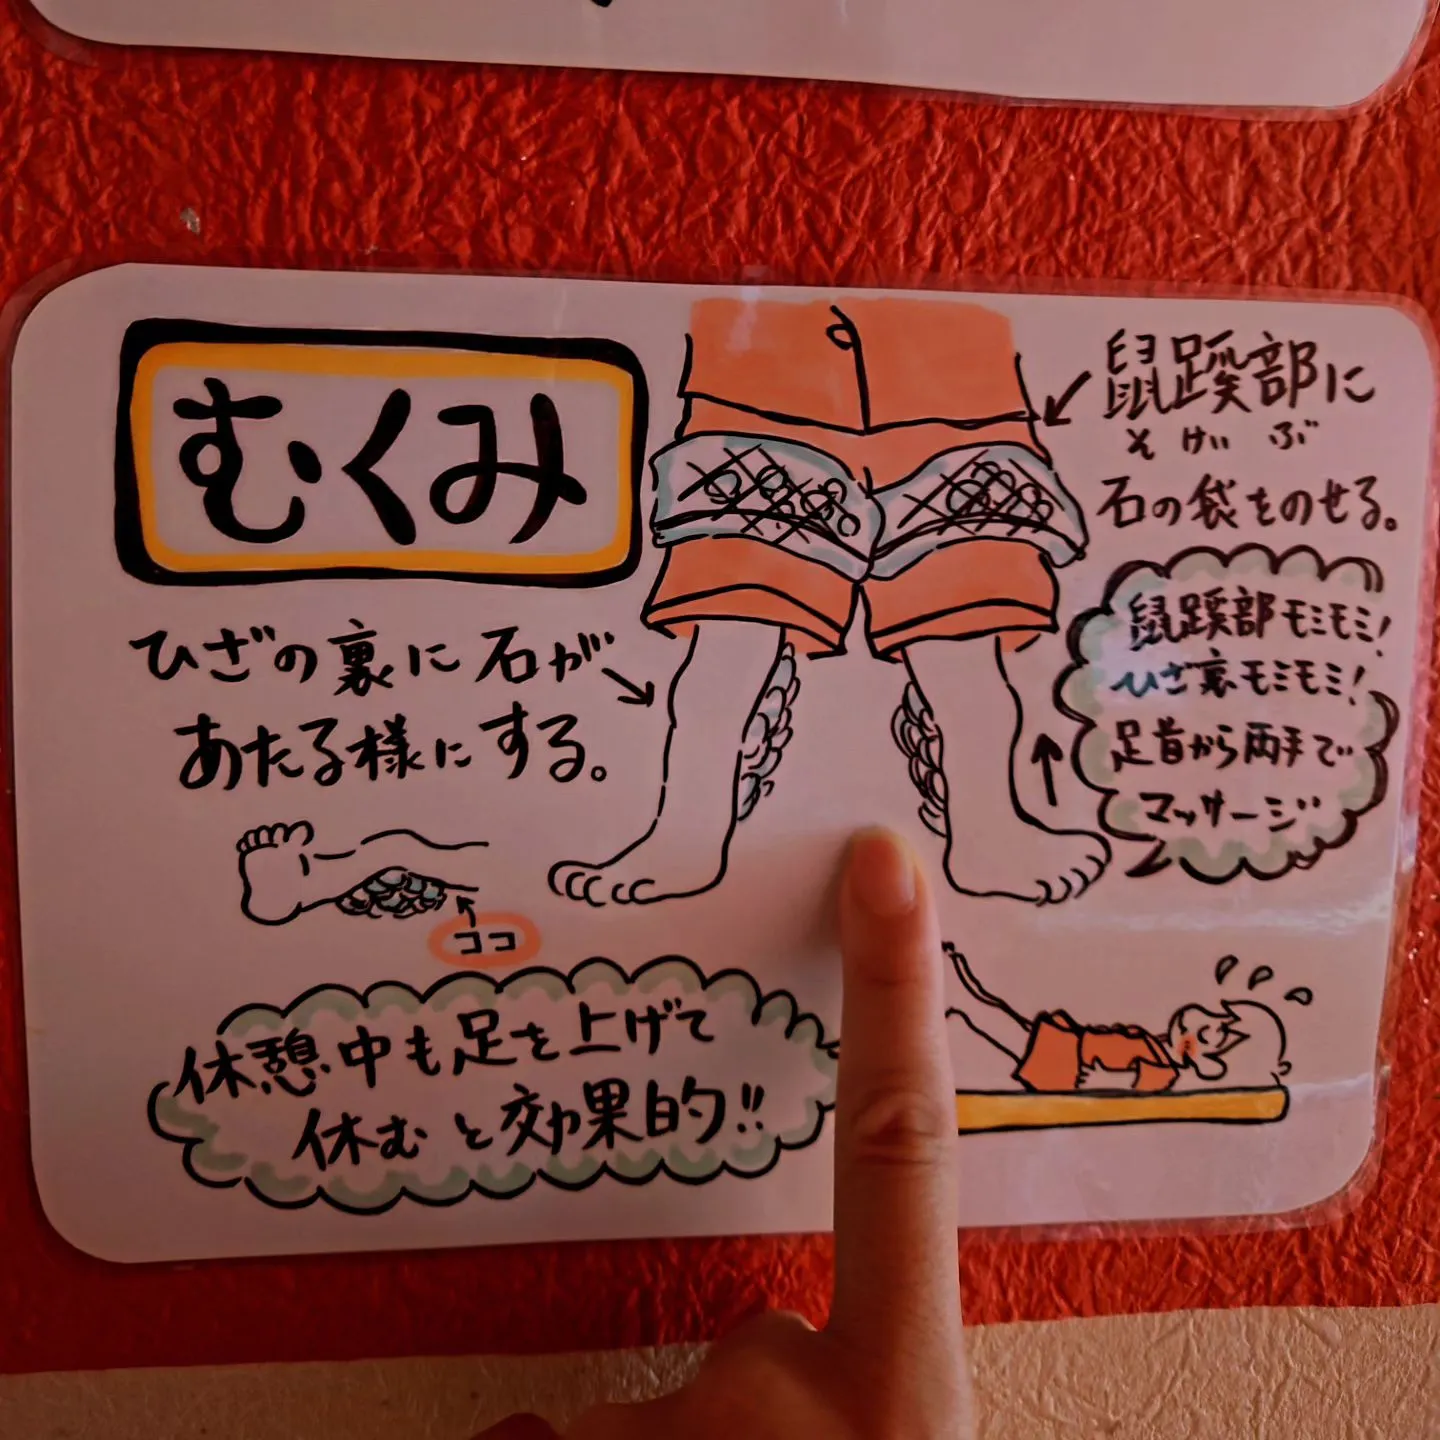 むくみ
鼠蹊部に
そけいぶ
石の袋をのせる。
ひざの裏に石が
あたる様にする。
鼠蹊部モミモミ!
ひざ裏モミモミ!
足首から両手で
マッサージ
ココ
休憩中も足を上げて
休むと効果的!!